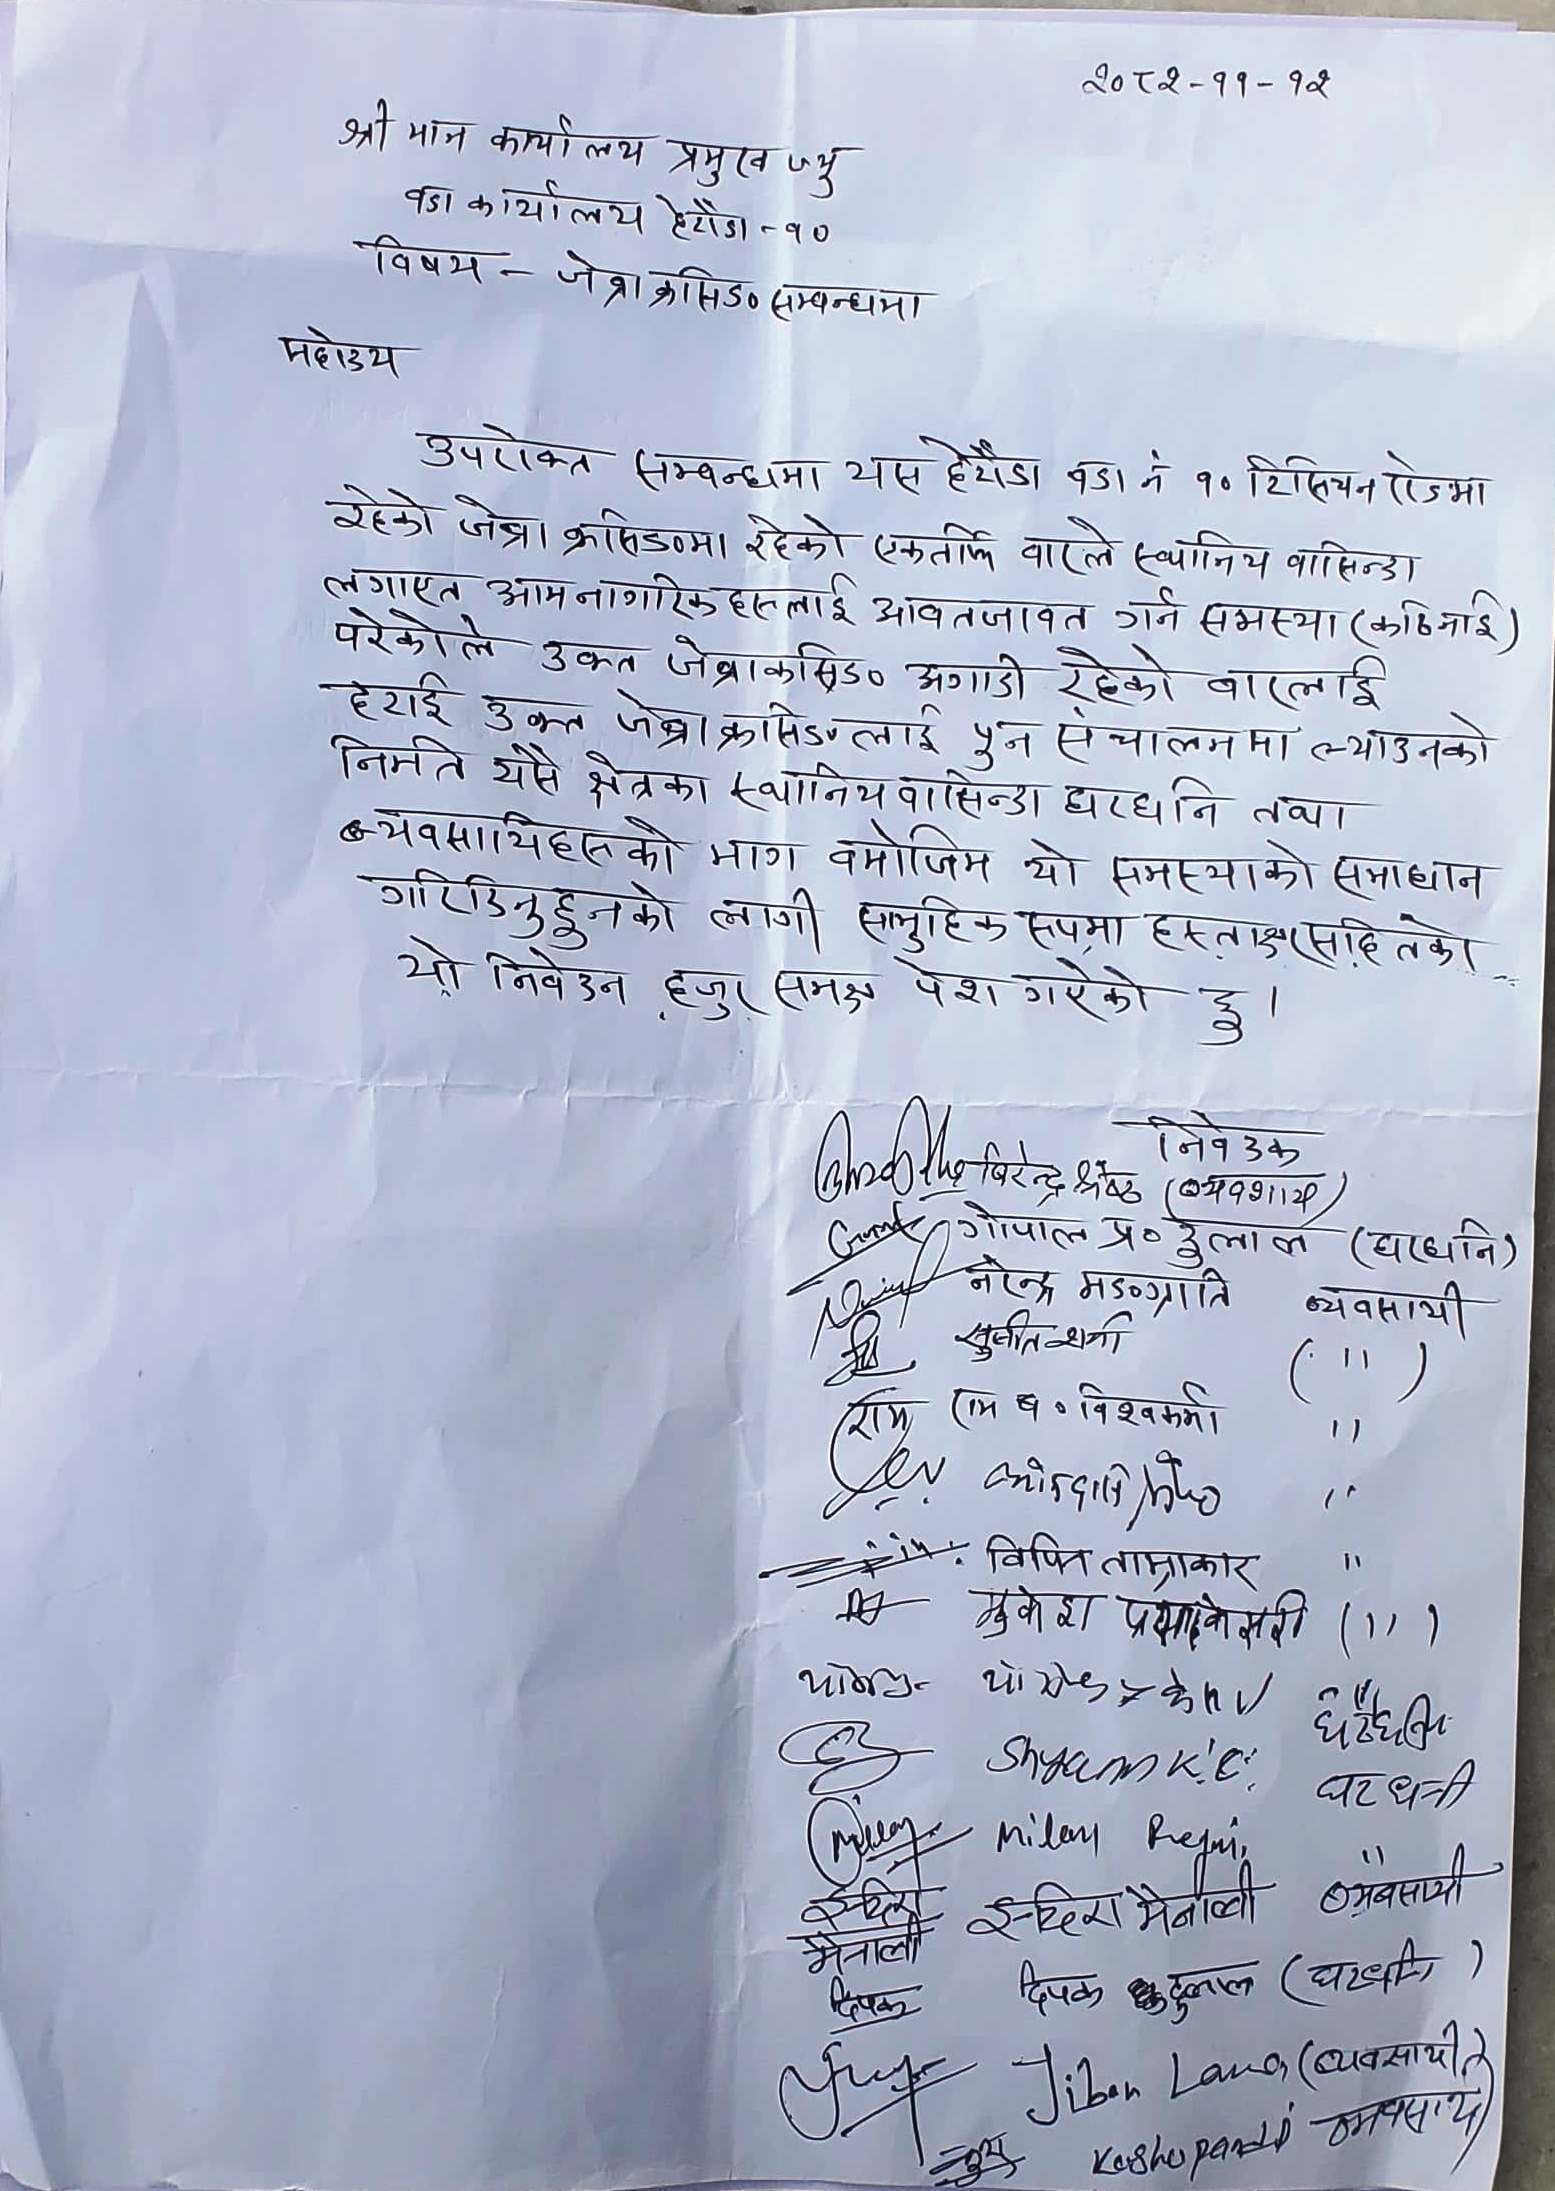 २०८२-११-१२
श्री मान कार्यालय प्रमुख ज्यु
वडा कार्यालय हेटौंडा-१०
विषय - जेब्रा क्रसिङ० सम्बन्धमा
महोदय
उपरोक्त सम्बन्धमा यस हेटौंडा वडा नं १० टिसियन रोडमा
रहेको जेब्रा क्रसिङ०मा रहेको एकतर्फि वारले स्थानिय वासिन्दा
लगाएत आमनागरिकहरुलाई आवतजावत गर्न समस्या (कठिनाई)
परेकोले उक्त जेब्राक्रसिङ० अगाडी रहेको वारलाई
हटाई उक्त जेब्रा क्रसिङ०लाई पुन संचालनमा ल्याउनको
निमति यसै क्षेत्रका स्थानियवासिन्दा घरधनि तथा
व्यवसायिहरुको माग वमोजिम यो समस्याको समाधान
गरिदिनुहुनको लागी सामुहिक रुपमा हस्ताक्षरसहितको
यो निवेदन हजुर समक्ष पेश गरेको छु ।
निवेदक
बिरेन्द्र श्रेष्ठ (व्यवशाय)
गोपाल प्र० दुलाल (घरधनि)
नरेन्द्र मङ०ग्राति व्यवसायी
सुजीत शर्मा ( " )
राम राम ब० विश्वकर्मा "
"
विपिन ताम्राकार "
मुकेश प्रसाद केसरी ( " )
"
घरधनि
Shyam K.C. घरधनी
Milan Regmi "
इन्दिरा मैनाली इन्दिरा मैनाली व्यवसायी
दिपक दिपक दुलाल (घरधनि)
Jiban Lama (व्यवसायी)
Keshu pandit व्यवसायी